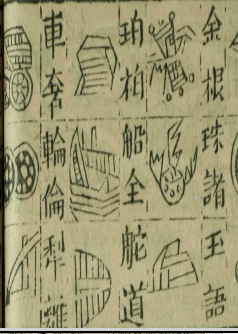 金根 珠諸 玉語
珀柏 船全 舵道
車奢 輪倫 犁離